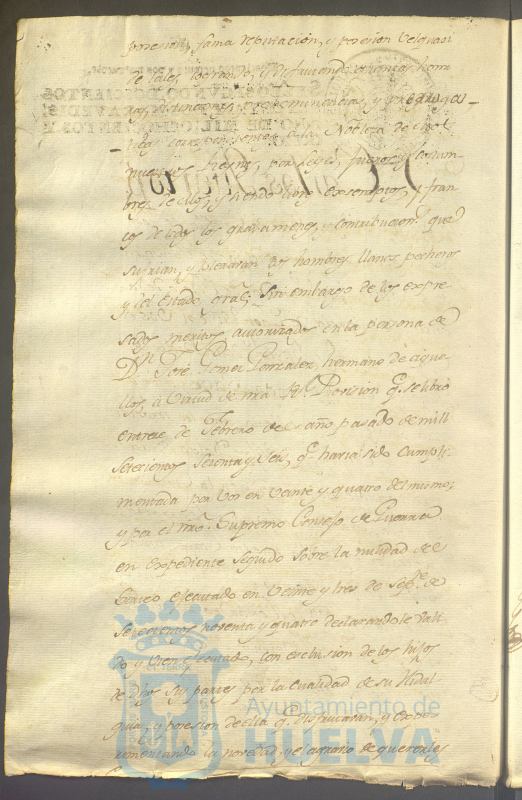 posesion, fama reputacion, y posesion velquasi
de tales, logrando, y disfrutando
y
de la Nobleza de
nuestros Reynos, por Leyes, fueros y costum-
bres de ellos, y siendo libres exsemptos, y fran-
cos de todos los gravamenes, y contribucion.s que
sufrian, y pecharan los hombres llanos pecheros
y del estado gral; sin embargo de los expre-
sados meritos autorizados en la persona de
D.n José Gomez Gonzalez, hermano de aque-
llos, à virtud de nra Rl. Provision q.e se libró
entrece de Febrero del año pasado de mill
Setecientos setenta y Seis, q.e havia sido Cumpli-
mentada por Vos en veinte y quatro del mismo,
y por el nro. Supremo Consejo de Guerra
en Expediente seguido sobre la nulidad de
Sorteo ejecutado en Veinte y tres de Sep.re de
Setecientos noventa y quatro declarandole Vali-
do y bien ejecutado, con exclusion de los hijos
de dhos sus partes por la Cualidad de su Hidal-
guia, y posesion de ella q.e disfrutaran, y
la novedad, y el agravio de quererles
Ayuntamiento de
HUELVA